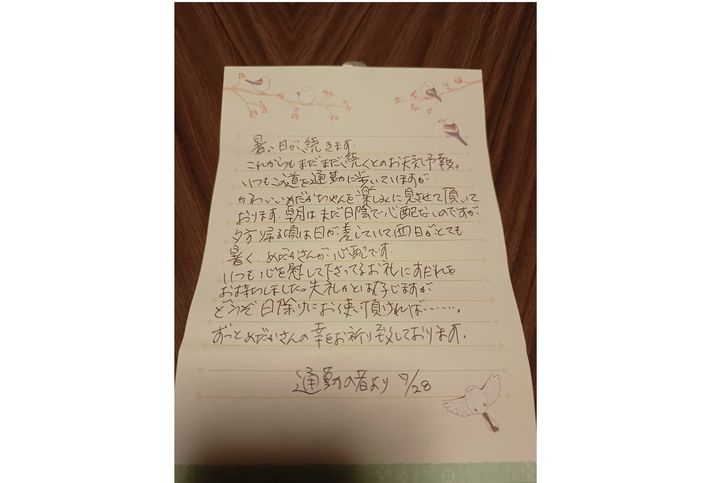 暑い日が、続きます
これからもまだまだ、続くとのお天気予報。
いつもこの道を通勤に歩いていますが
かわいいめだかちゃんを楽しみに見させて頂いて
おります。朝はまだ日陰で心配ないのですが
夕方帰る頃は日が差していて西日がとても
暑く、めだかさんが心配です
いつも心を慰して下さってるお礼にすだれを
お持ちしました。失礼かとは存じますが
どうぞ日除けにお使い頂ければ……。
ずっとめだかさんの幸をお祈り致しております。
通勤の者より 9/28